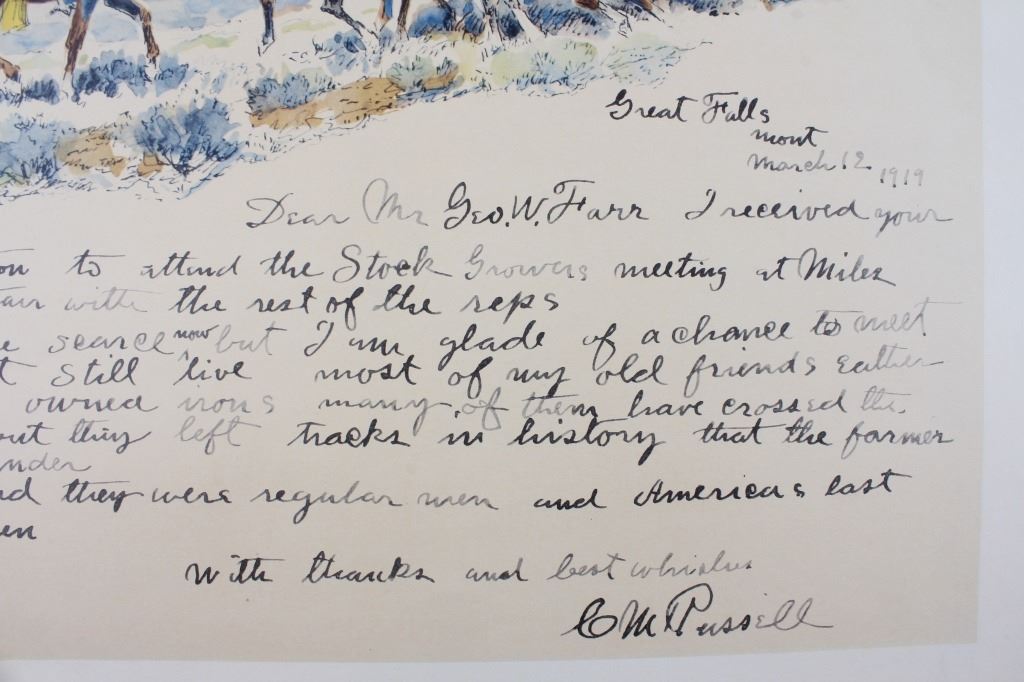 Great Falls
mont
March 12 1919
Dear Mr Geo. W. Farr I received your
on to attend the Stock Growers meeting at Miles
with the rest of the reps
e scarce now but I am glade of a chance to meet
t still live most of my old friends eather
owned irons many of them have crossed the
out they left tracks in history that the farmer
nder
nd they were regular men and Americas last
en
With thanks and best whishes
C M Russell